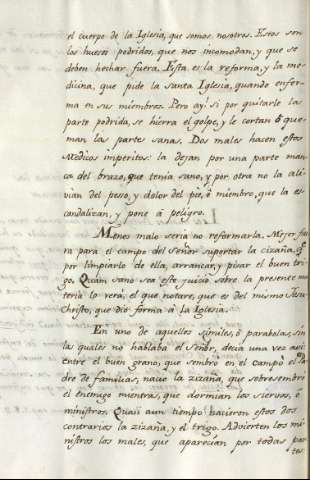 el cuerpo de la Iglesia, que somos nosotros. Estos son
los huesos podridos, que nos incomodan, y que se
deben hechar fuera. Esta es la reforma, y la me-
dicina, que pide la Santa Iglesia, quando enfer-
ma en sus miembros. Pero ay! si por quitarle la
parte podrida, se hierra el golpe, y le cortan ó que-
man las partes sanas. Dos males hacen estos
Medicos imperitos: la dejan por una parte man-
ca del brazo, que tenia sano, y por otra no la ali-
vian del peso, y dolor del pie, ó miembro, que la es-
candalizan, y pone á peligro.
Menos malo seria no reformarla. Mejor fue-
ra para el campo del Señor suportar la cizaña, q.
por limpiarlo de ella, arrancar, y pisar el buen tri-
go. Quàn sano sea este juicio sobre la presente ma-
teria lo verà, el que notare, que es del mismo Jesu-
christo, que diò forma à la Iglesia.
En uno de aquellos similes, ò parabolas, sin
las quales no hablaba el Señor, decia una vez asi:
entre el buen grano, que sembrò en el campo el Pa-
dre de familias, naciò la zizaña, que sobresembrò
el enemigo mientras, que dormian los siervos, ò
ministros. Quasi aun tiempo nacieron estos dos
contrarios la zizaña, y el trigo. Advierten los mi-
nistros los males, que aparecian por todas par-
tes.